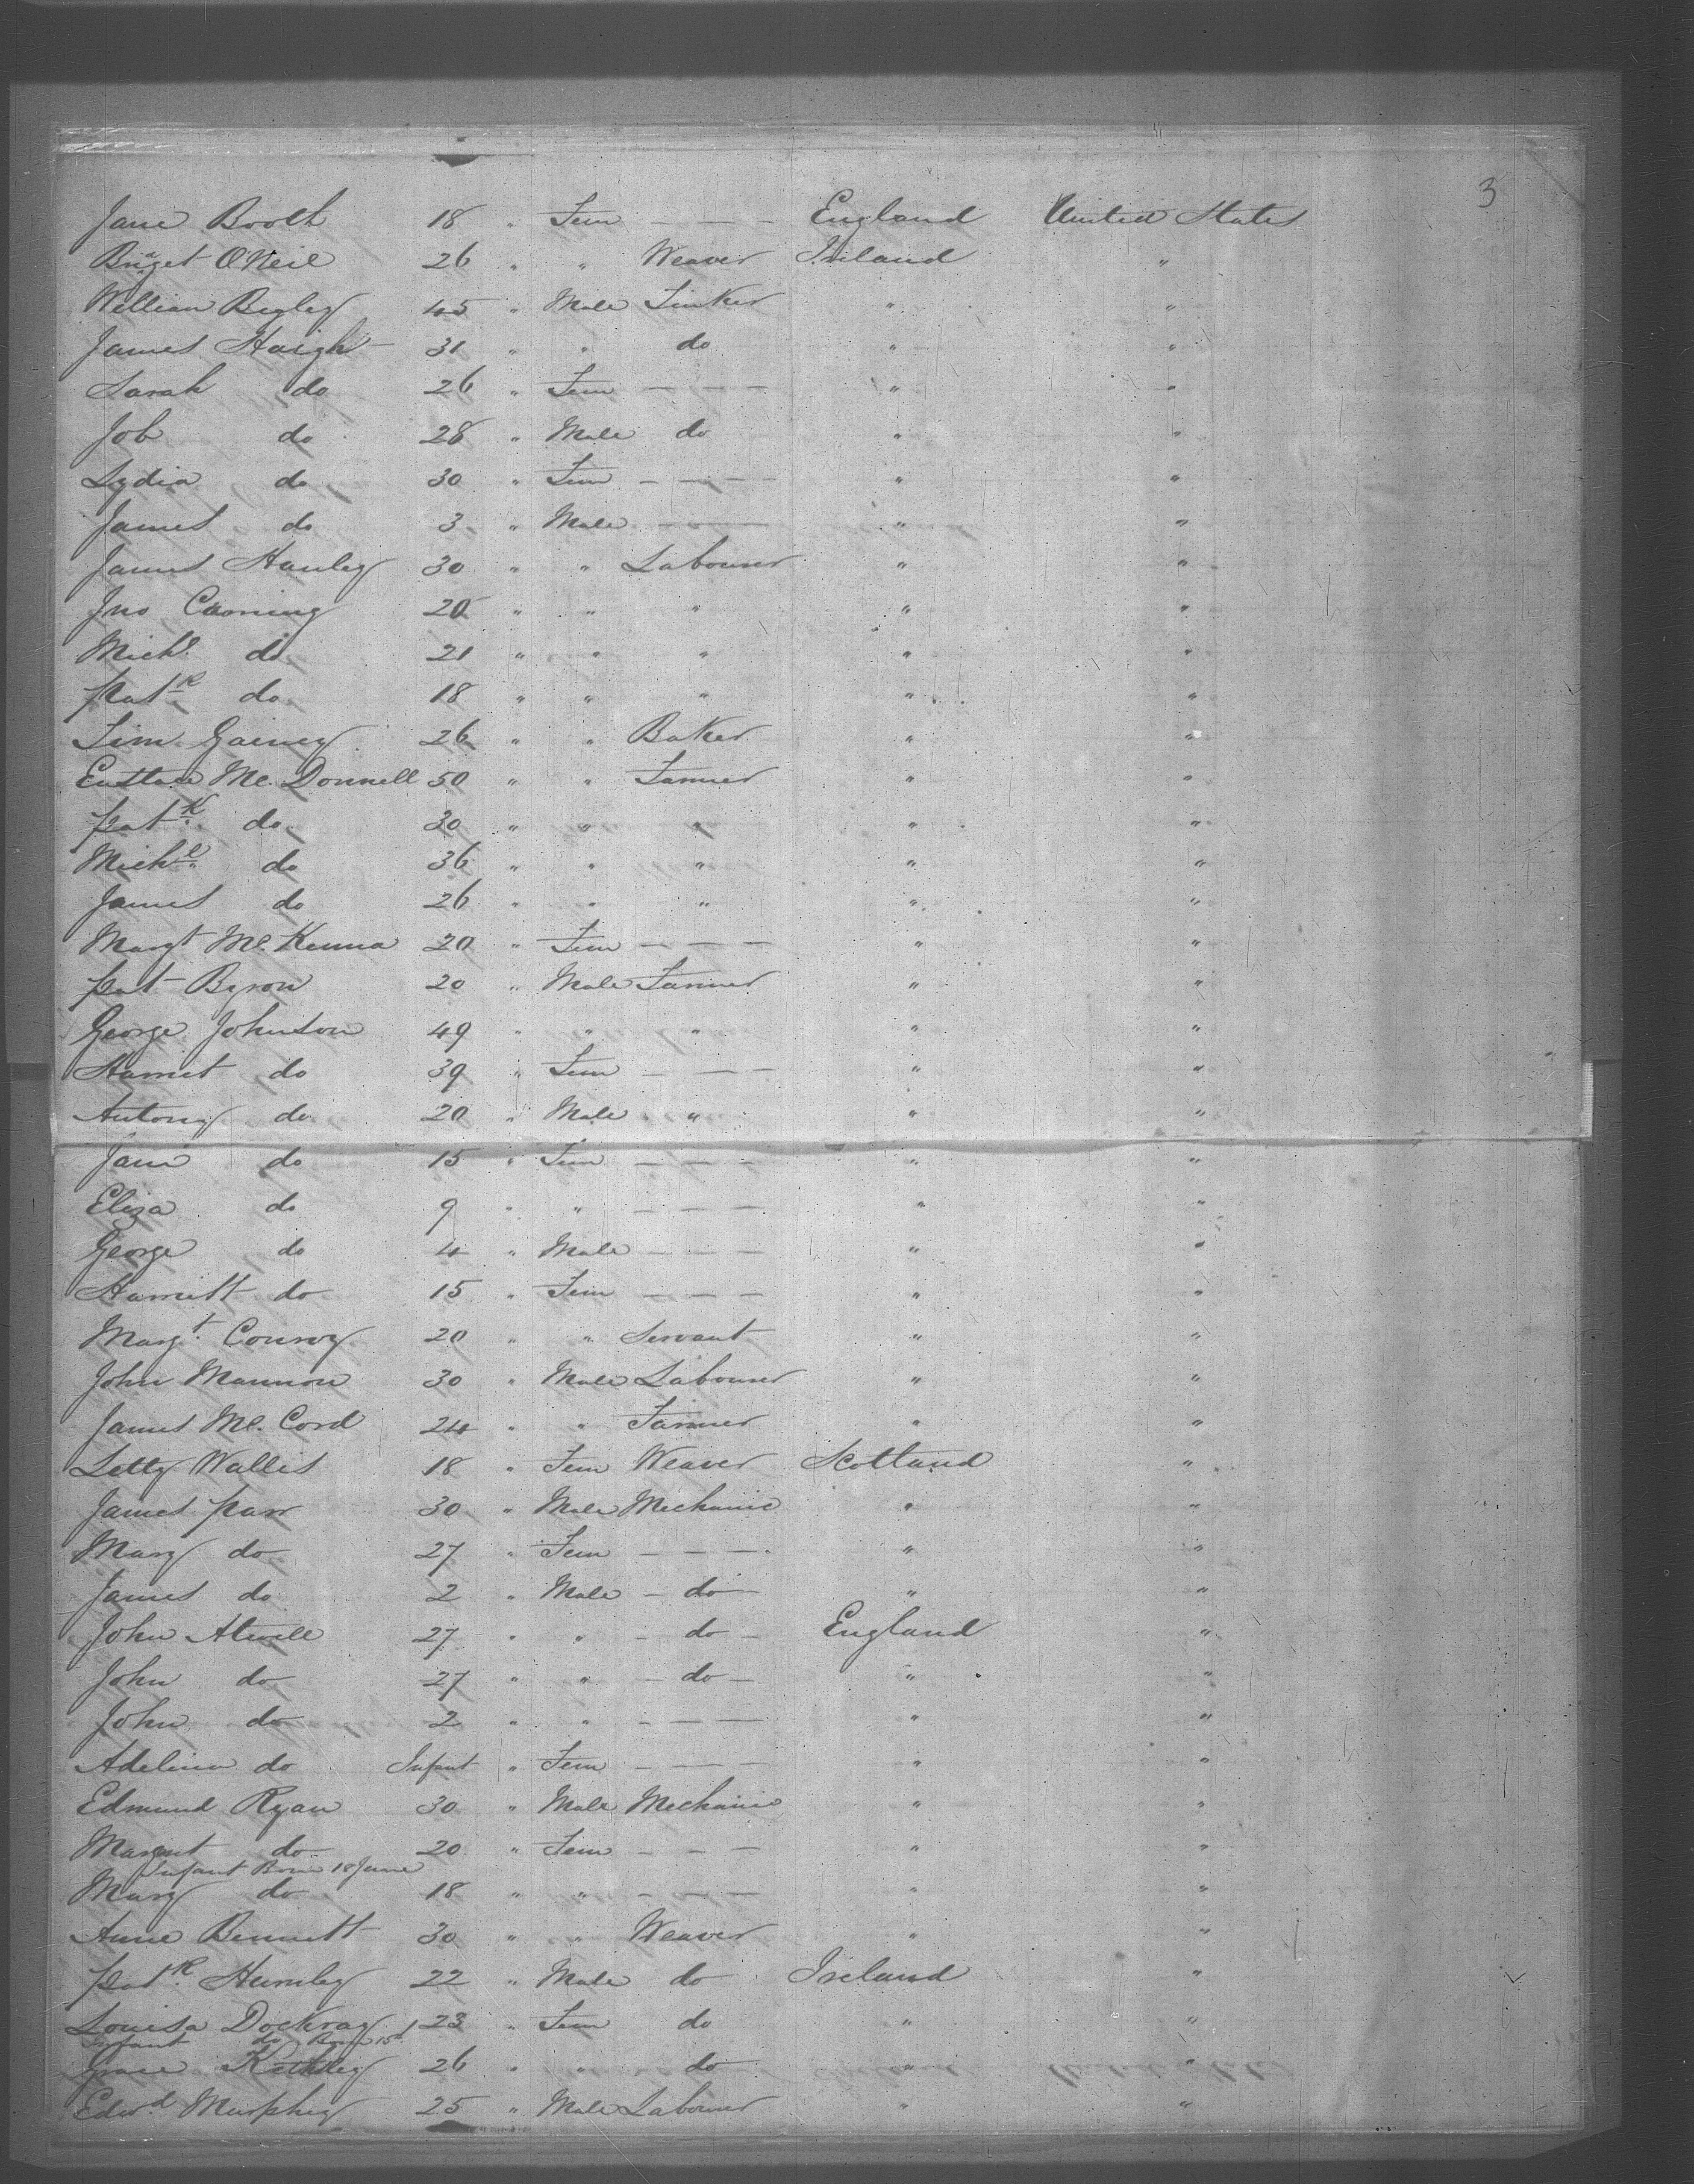 3
Jane Booth 18 " Fem — — — England United States
Bridget O'Neil 26 " " Weaver Ireland "
William Begley 45 " Male Tinker " "
James Haigh 31 " " do " "
Sarah do 26 " Fem — — — " "
Job do 28 " Male do " "
Lydia do 30 " Fem — — — " "
James do 3 " Male — — " "
James Hanley 30 " " Labourer " "
Jno 20 " " " " "
Michl do 21 " " " " "
Patk do 18 " " " " "
Tim Gainey 26 " " Baker " "
Eustace Mc. Donnell 50 " " Farmer " "
Patk do 30 " " " " "
Michl do 36 " " " " "
James do 26 " " " " "
Margt Mc. Kenna 20 " Fem — — — " "
Pat Byron 20 " Male Farmer " "
George Johnson 49 " " " " "
Harriet do 39 " Fem — — — " "
Antony do 20 " Male " " "
Jane do 15 " Fem — — — " "
Eliza do 9 " " — — — " "
George do 4 " Male — — — " "
Harriett do 15 " Fem — — — " "
Margt Conroy 20 " " Servant " "
John Mannon 30 " Male Labourer " "
James Mc. Cord 24 " " Farmer " "
Letty Wallis 18 " Fem Weaver Scotland "
James Parr 30 " Male Mechanic " "
Mary do 27 " Fem — — — " "
James do 2 " Male — do — " "
John Atwell 27 " " — do — England "
John do 27 " " — do — " "
John do 2 " " — — — " "
Adelina do Infant " Fem — — — " "
Edmund Ryan 30 " Male Mechanic " "
Margaret do 20 " Fem — — — " "
Infant Born 18 June
Mary do 18 " " — — — " "
Anne Bennett 30 " " Weaver " "
Patk Hurnley 22 " Male do Ireland "
Louisa Dockray 23 " Fem do " "
Infant do Born 15
Grace 26 " " do " "
Edwd Murphy 25 " Male Labourer " "